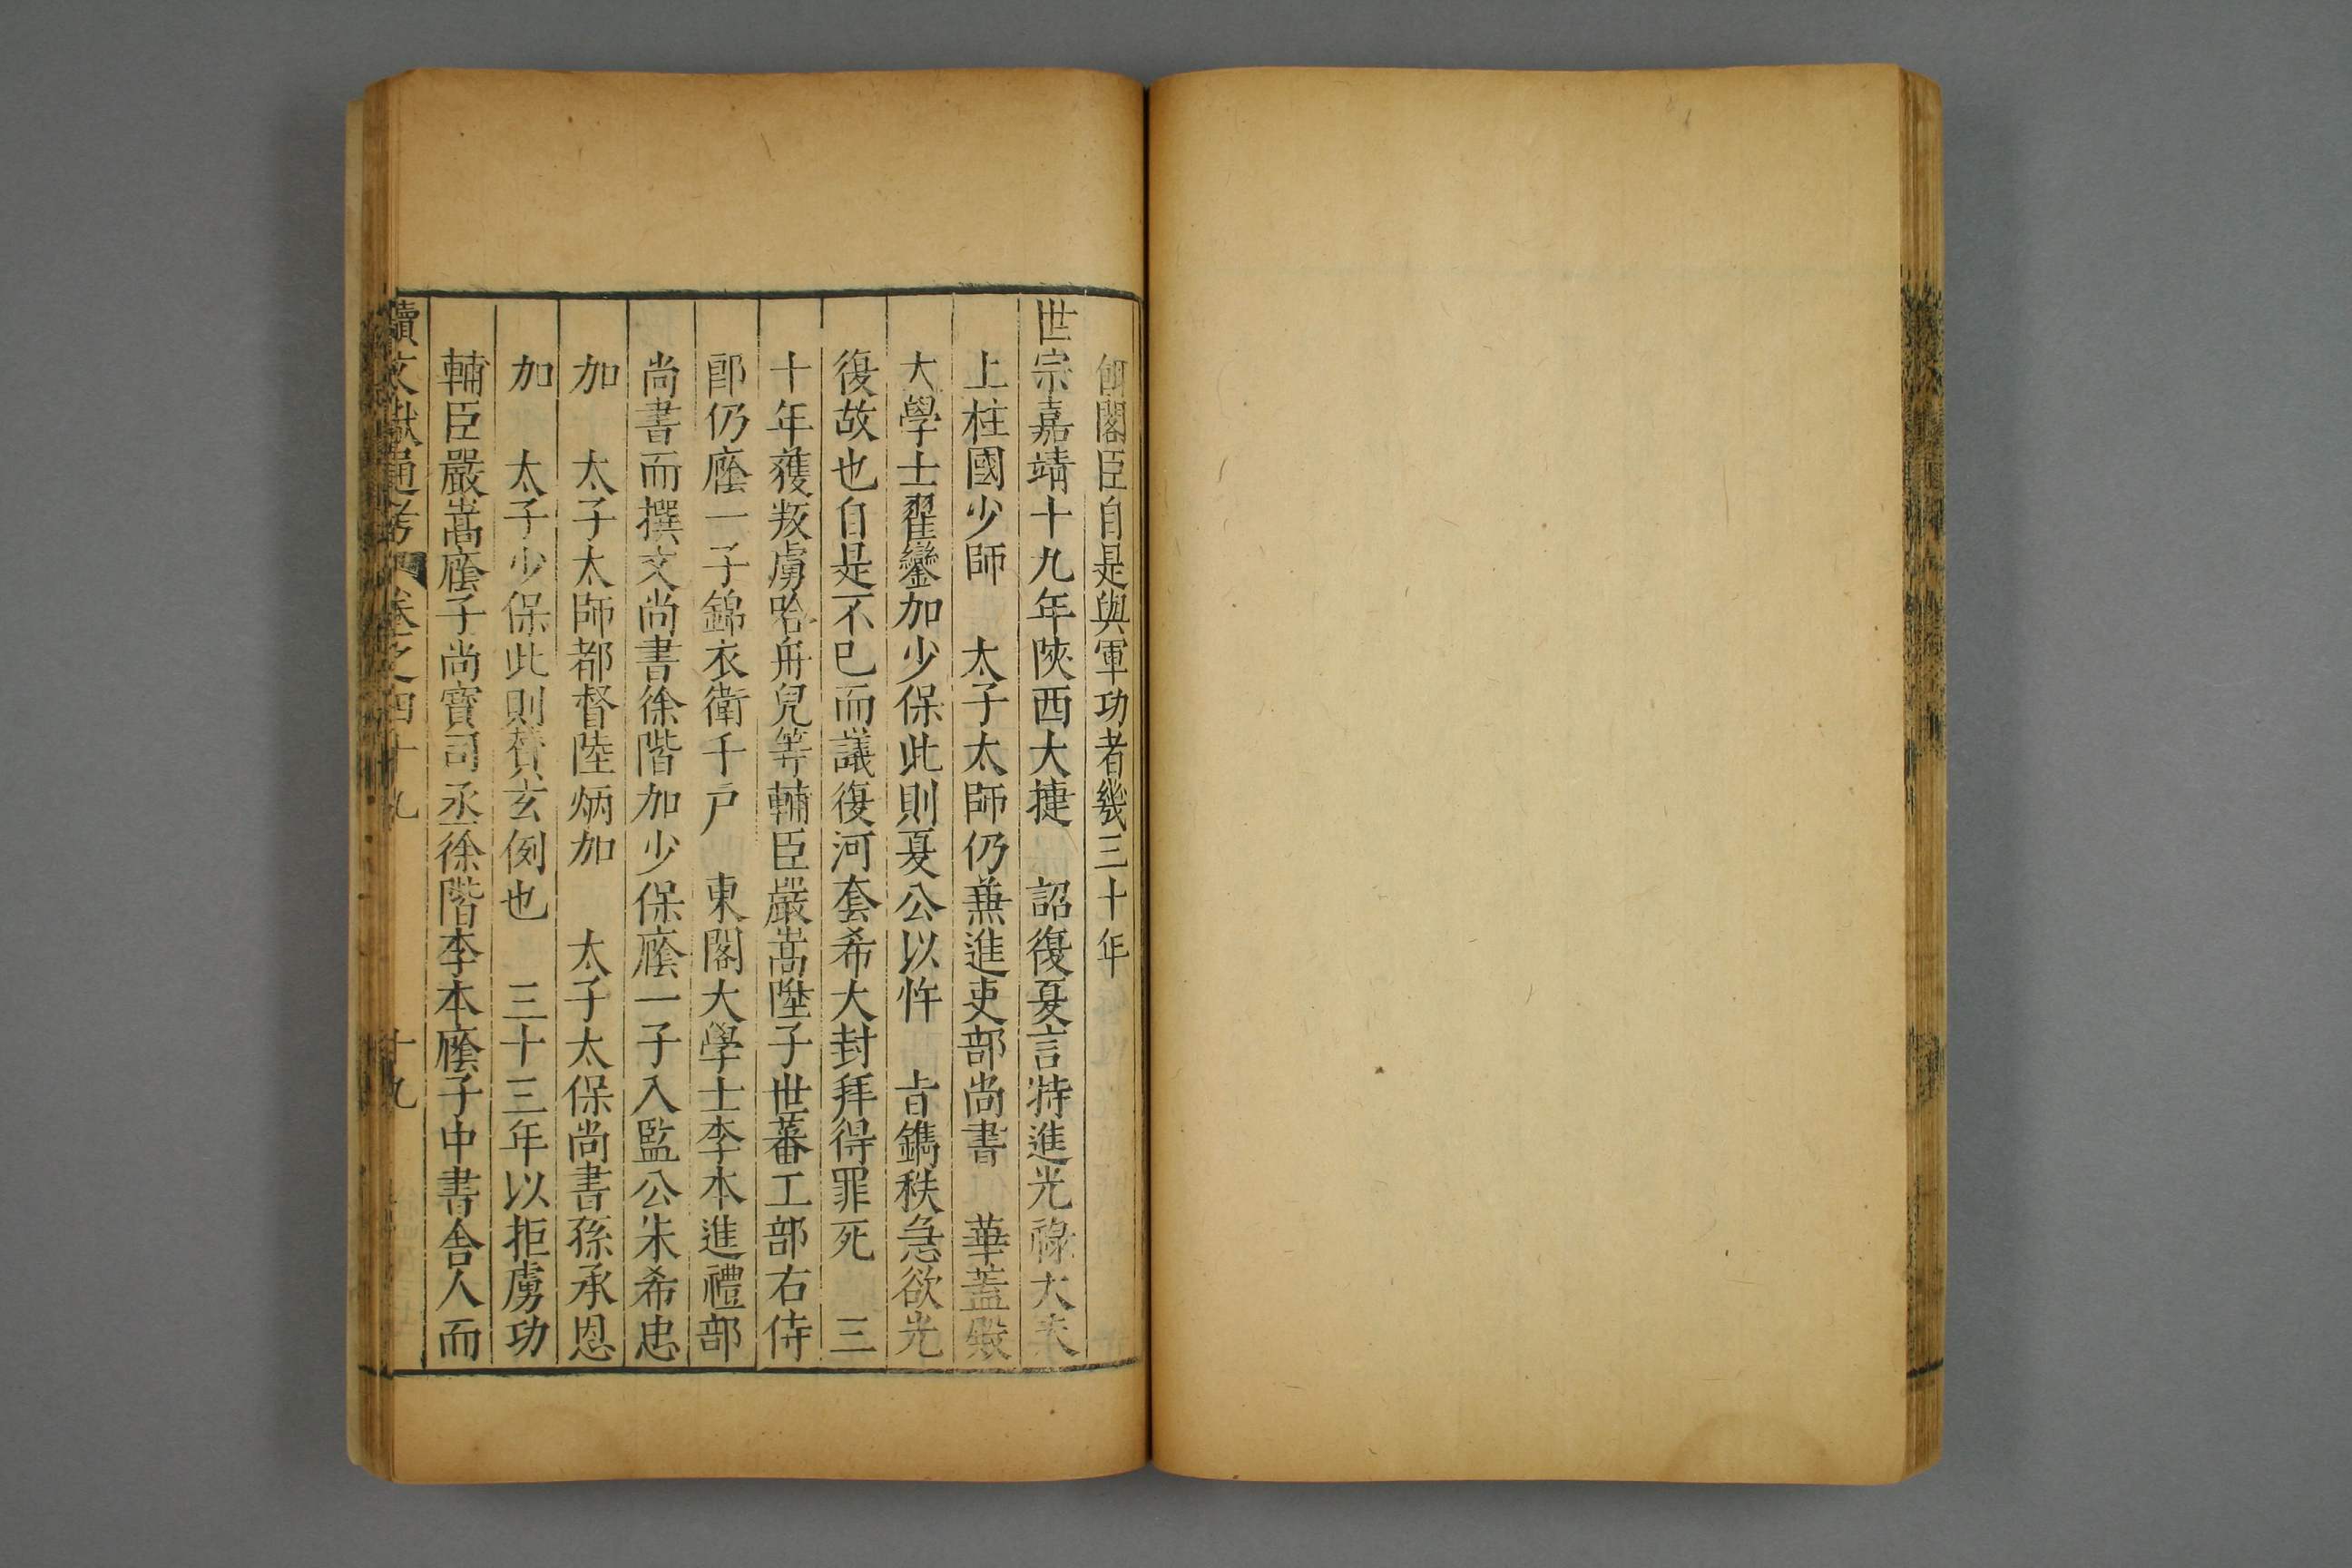 閣臣自是與軍功者幾三十年
世宗嘉靖十九年陝西大捷 詔復夏言特進光祿大夫
上柱國少師 太子太師仍兼進吏部尚書 華蓋殿
大學士翟鑾加少保此則夏公以忤 旨鐫秩急欲光
復故也自是不已而議復河套希大封拜得罪死 三
十年獲叛虜哈舟兒等輔臣嚴嵩陞子世蕃工部右侍
郎仍廕一子錦衣衛千戶 東閣大學士李本進禮部
尚書而撰文尚書徐階加少保廕一子入監公朱希忠
加 太子太師都督陸炳加 太子太保尚書孫承恩
加 太子少保此則贊玄例也 三十三年以拒虜功
輔臣嚴嵩廕子尚寶司丞徐階李本廕子中書舍人而
續文獻通考 卷之四十九 十九